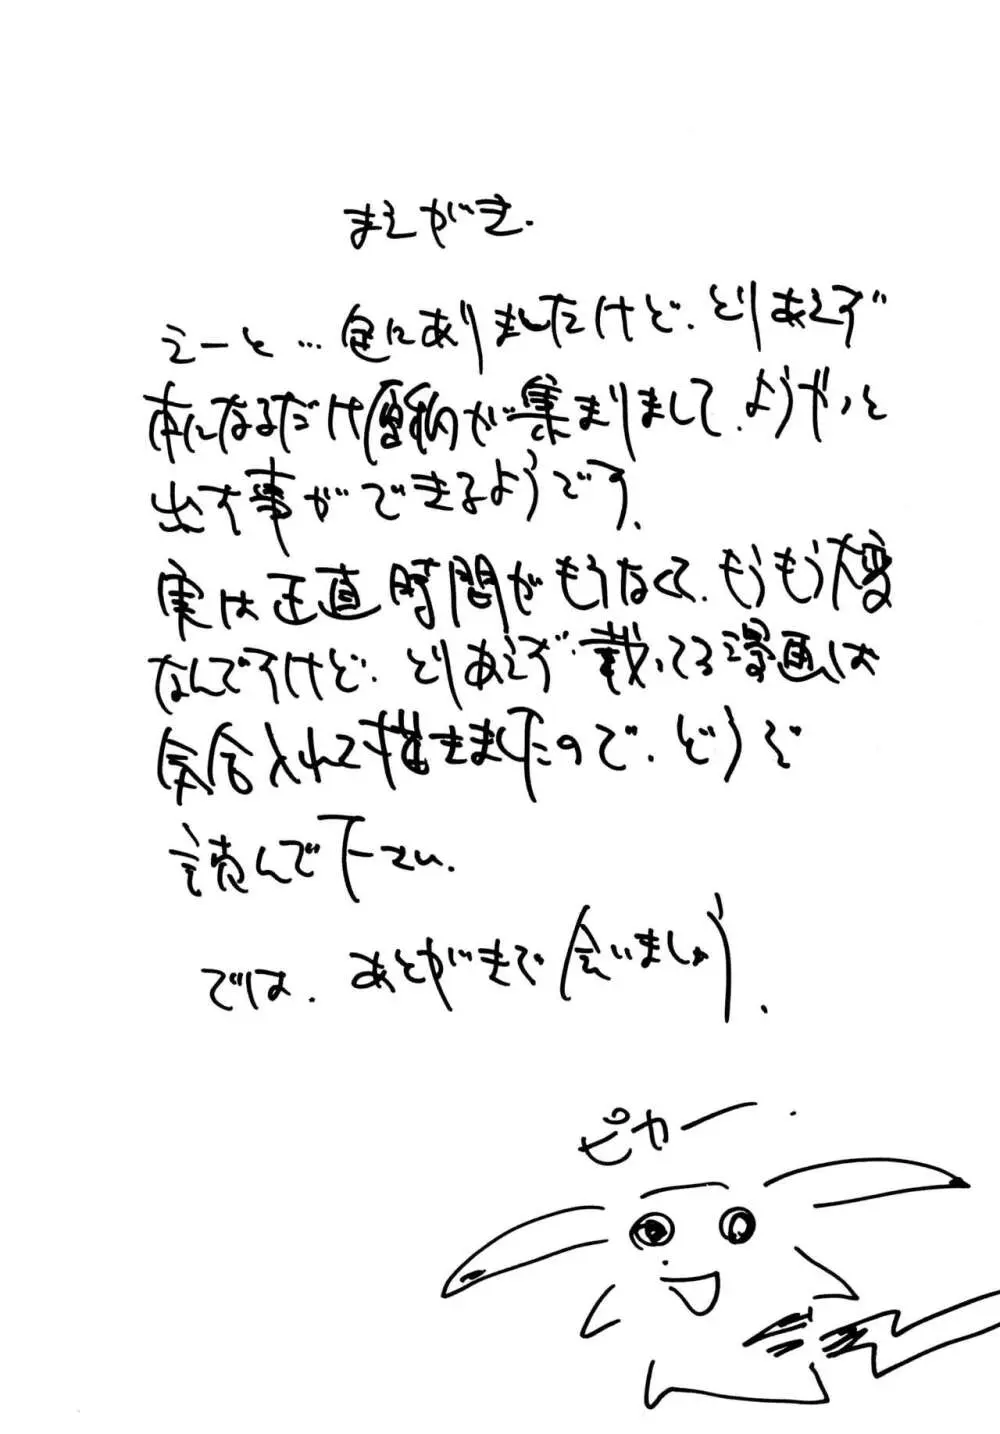 まえがき.
えーと…色々ありましたけど、とりあえず
本になるだけ原稿が集まりまして、ようやっと
出す事ができるようです。
実は正直時間がもうなくて、もうもう大変
なんですけど、とりあえず載ってる漫画は
気合入れて描きましたので、どうぞ
読んで下さい.
では、あとがきで会いましょう.
ピカー.